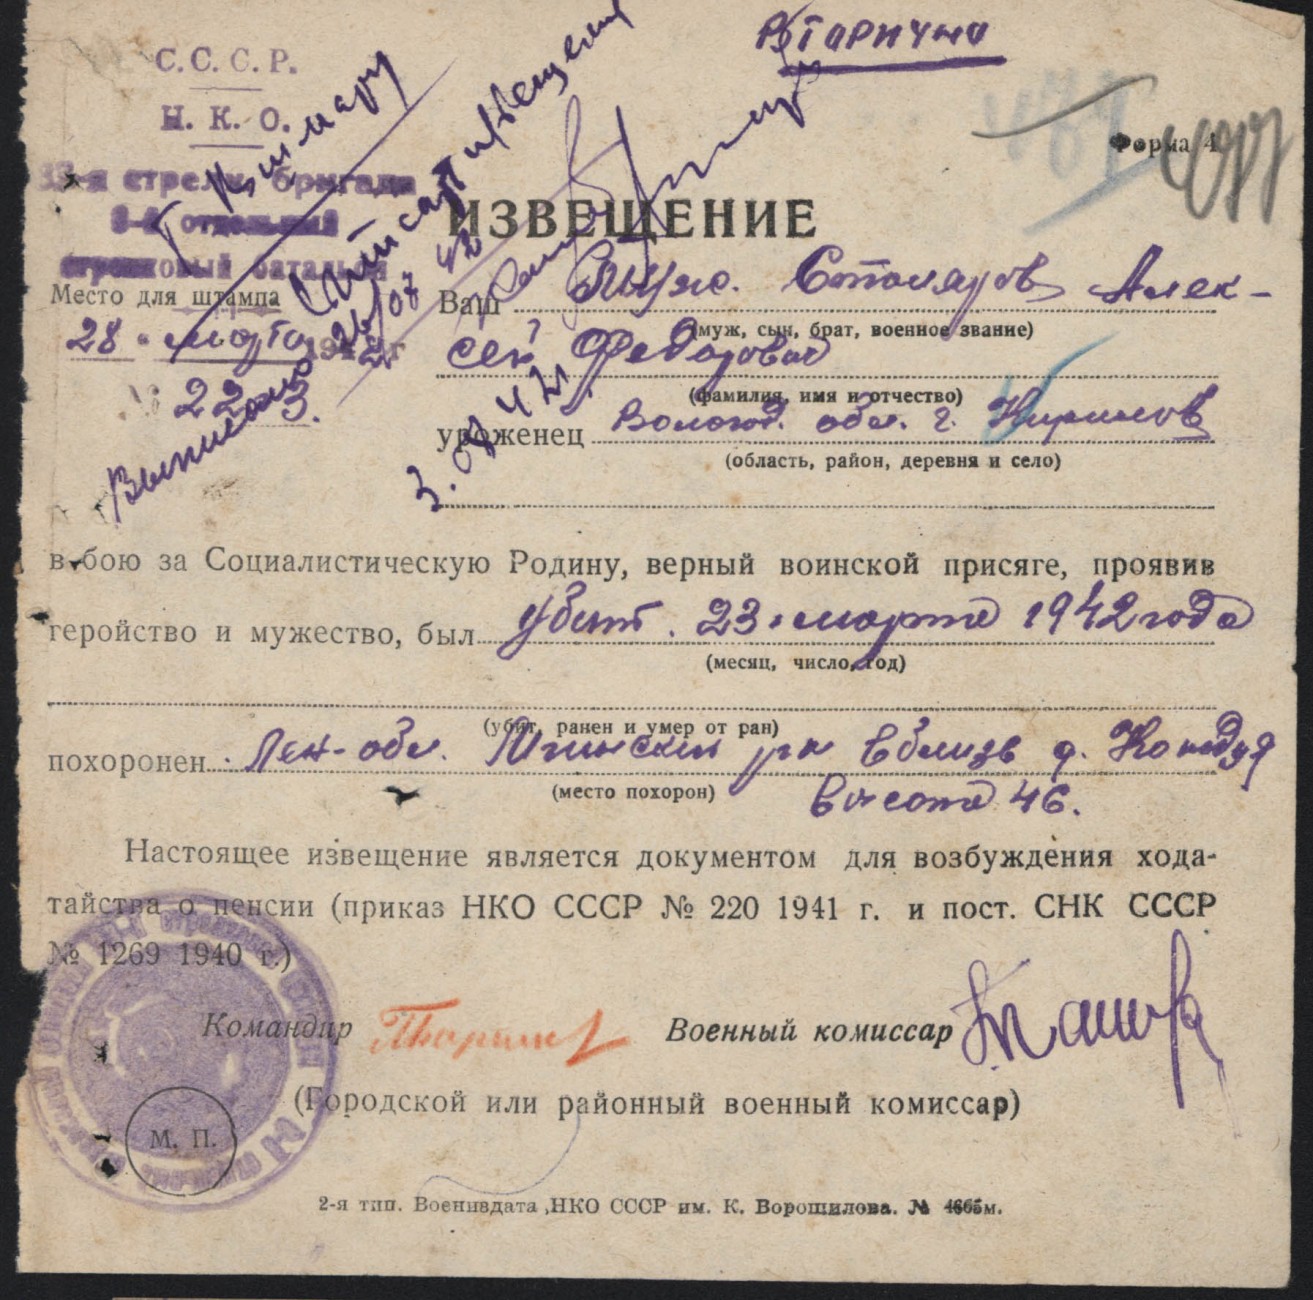 Вторично
С. С. С. Р.
Н. К. О.
Форма 4
стрелк. бригада
отдельный
стрелковый батальон
ИЗВЕЩЕНИЕ
Место для штампа
28 " марта 1942 г
223.
Выписано 26/07 42
3.08 42
Ваш муж. Столяров Алек-
(муж, сын, брат, военное звание)
сей Федорович
(фамилия, имя и отчество)
уроженец Вологод. обл. г. Кирилов
(область, район, деревня и село)
в бою за Социалистическую Родину, верный воинской присяге, проявив
геройство и мужество, был убит. 23 марта 1942 года
(месяц, число, год)
(убит, ранен и умер от ран)
похоронен Лен-обл. рн вблизь д. Кондуя
(место похорон)
высота 46.
Настоящее извещение является документом для возбуждения хода-
тайства о пенсии (приказ НКО СССР № 220 1941 г. и пост. СНК СССР
№ 1269 1940 г.)
Командир
Военный комиссар
(Городской или районный военный комиссар)
М. П.
2-я тип. Воениздата НКО СССР им. К. Ворошилова. №